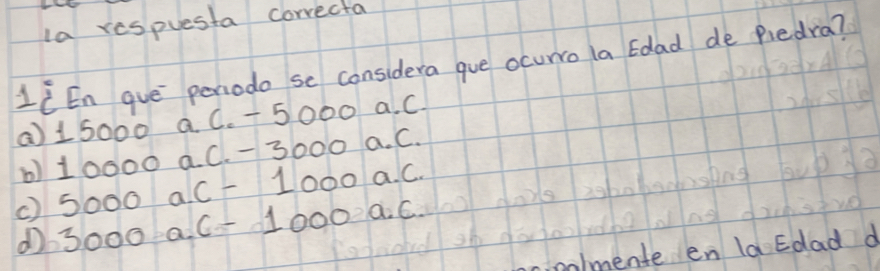 la respuesta correcta
1¿En qué periodo se considera que ocurrio la Edad de Piedra?
a) 15000 a.C. - 5000 a.C.
b) 10000 a.C. - 3000 a.C.
c) 5000 a.C - 1000 a.C.
d) 3000 a.C - 1000 a.C.
en la Edad d